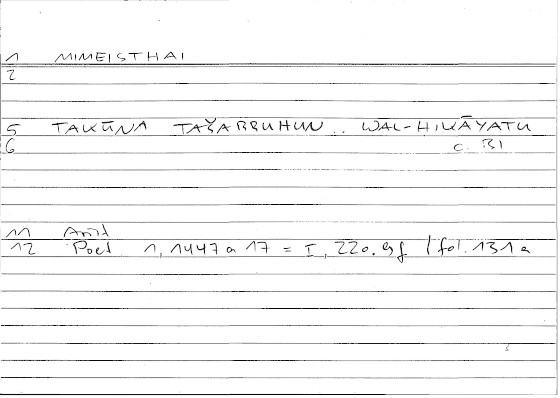 1 MIMEISTHAI
2
5 TAKŪNA TAŠABBUHUN .. WAL-HIKĀYATU
6 c. BI
11 Arist
12 Poet 1, 1447 a 17 = I, 220.9f / fol. 131 a